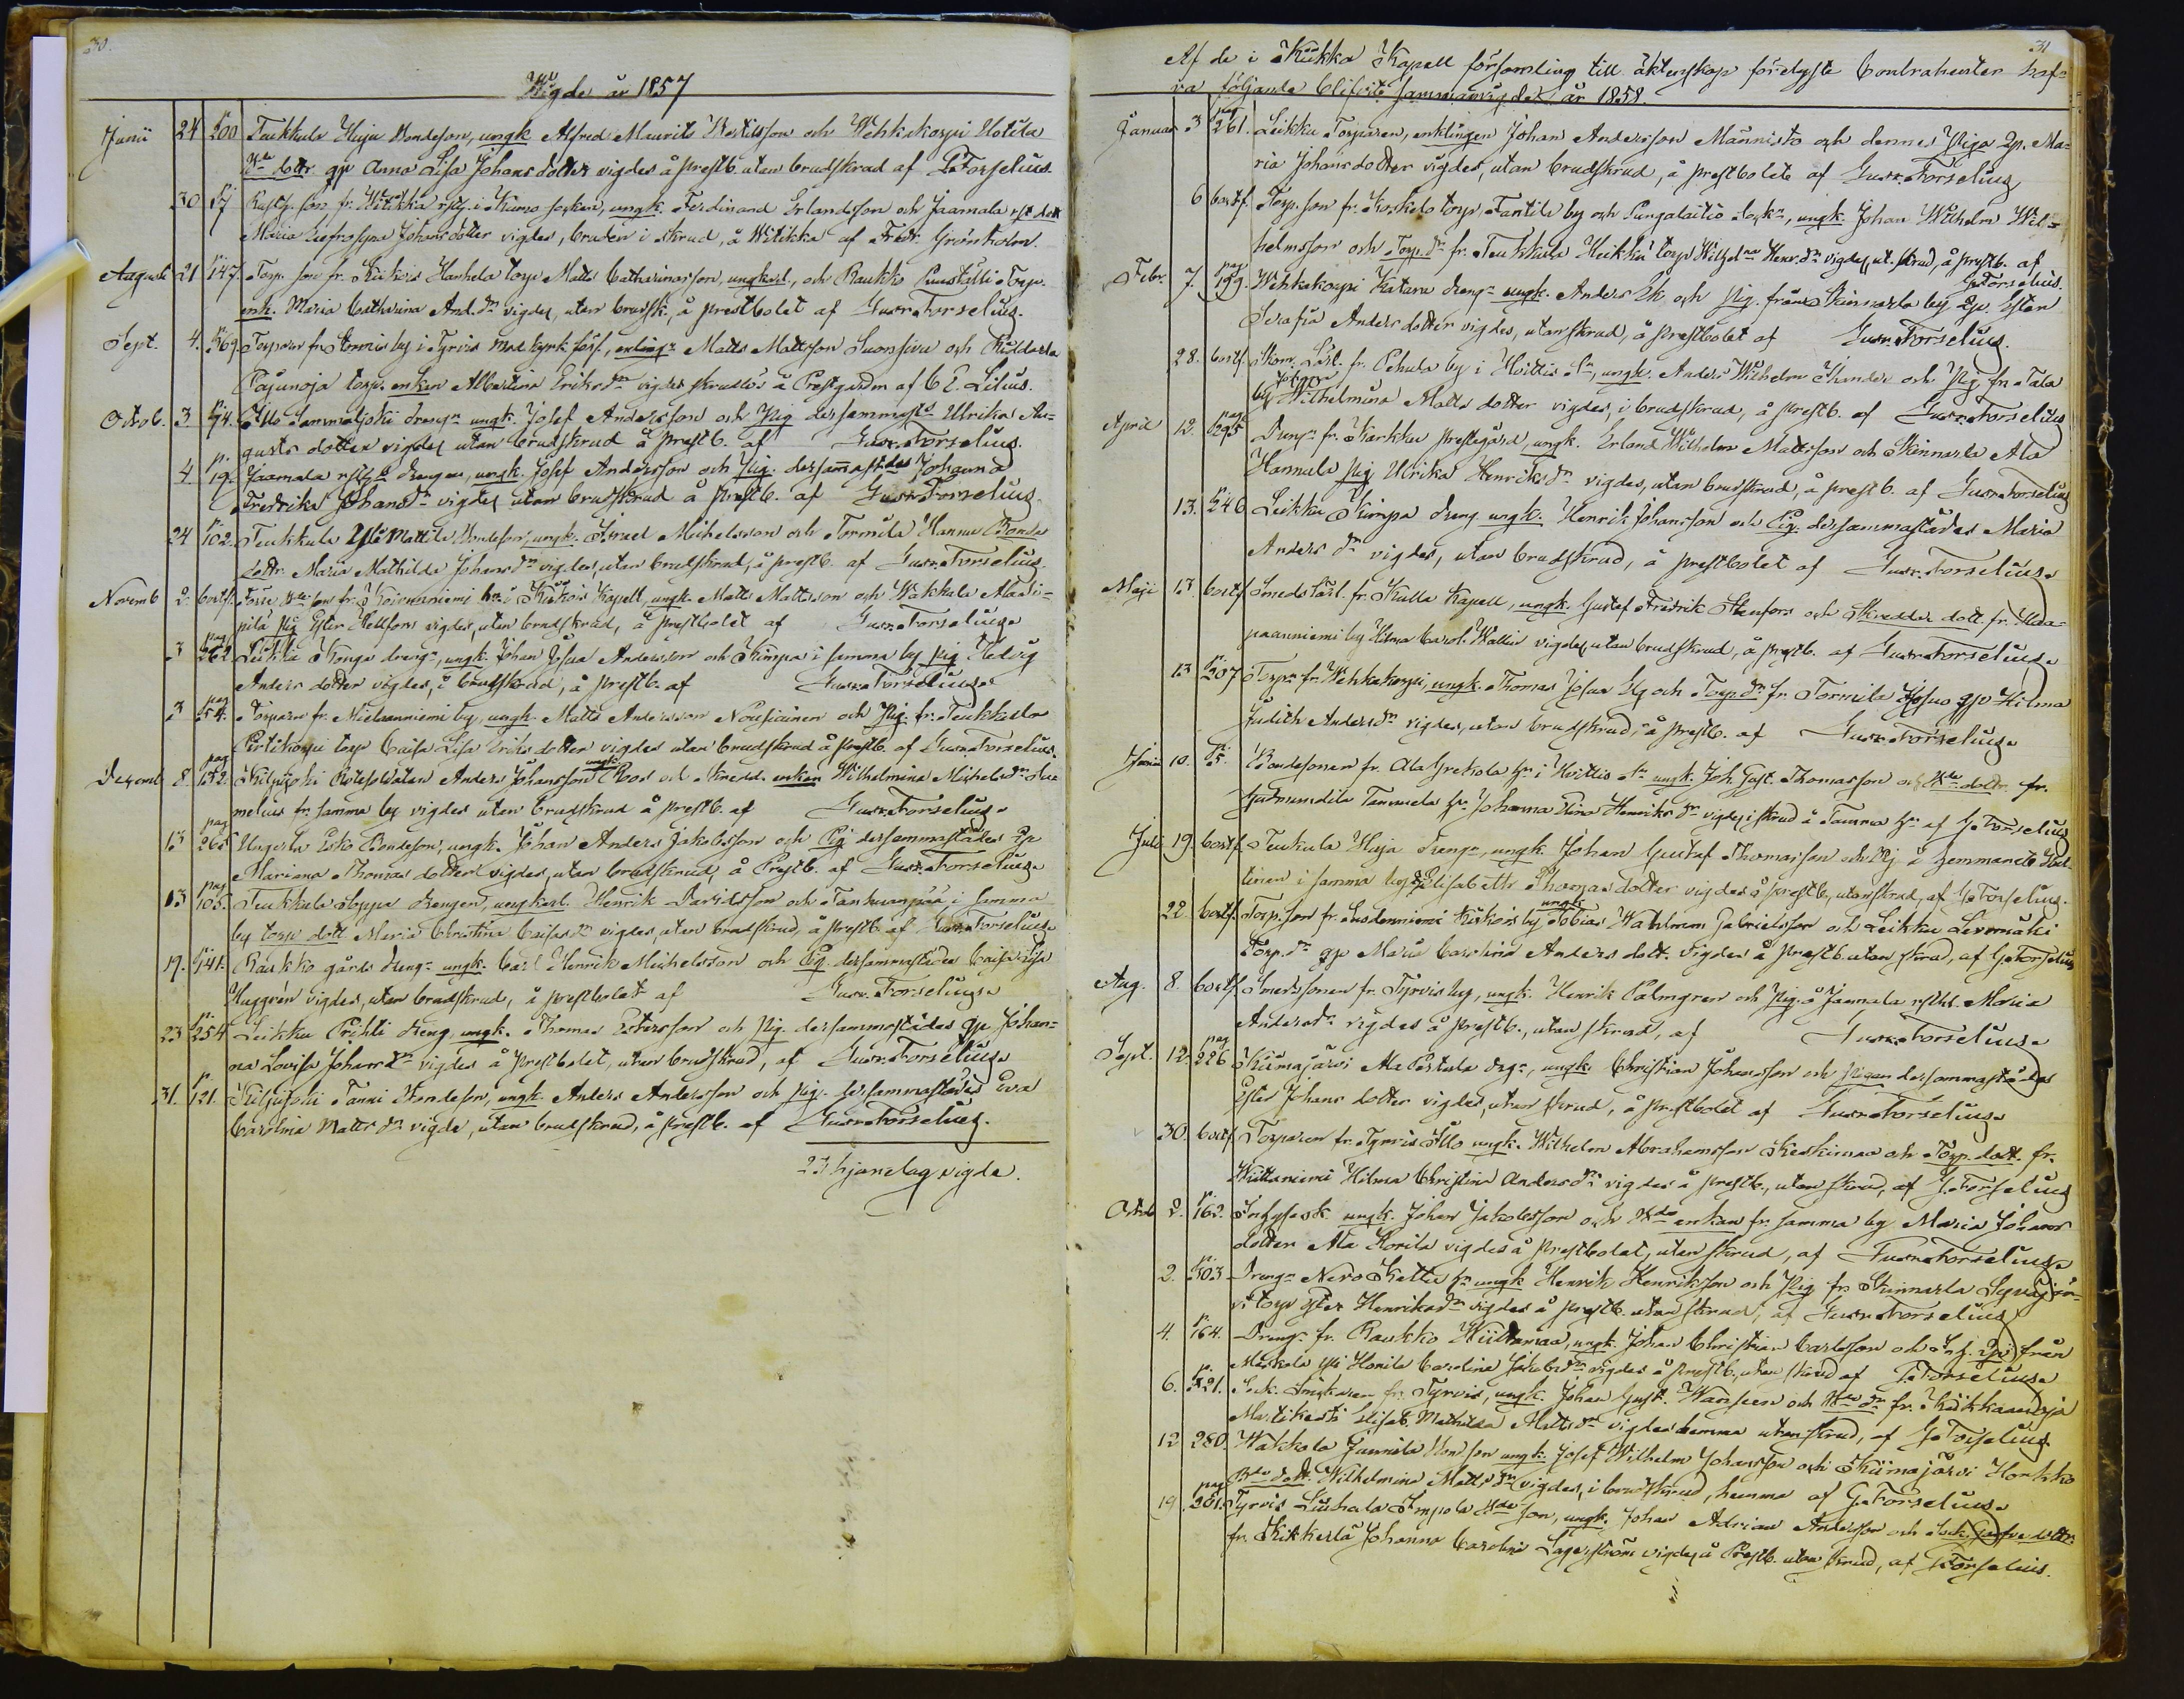 30.
Wigde år 1857
Junii 24 p. 200 Teukkula Uuja Bondeson, ungk. Alfred Maurits Mattsson och Wehkakorpi Uotila
Bde dottr. qp Anna Lisa Johansdotter vigdes å prestb. utan brudskrud af G. Forselius.
30 p. 17 Rusth. son fr. Witikka rsth. i Kumo socken, ungk. Ferdinand Erlandsson och Jaamala rst. dott
Maria Eufrosyna Johansdotter vigdes, bruden i skrud, å Witikka af Fredr. Grönholm.
Augusti 21 p. 147. Torp. son fr. Kiikois Hanhela torp Matts Catharinasson, ungkarl, och Raukko torp.
enk. Maria Catharina And. dr vigdes, utan brudsk., å prestbolet af Gust. Forselius.
Sept. 4. p. 169. Torparen fr. Stormis by i Tyrvis Moderkyrk. förs., enkling Matts Mattsson Suonsivu och Kiuldarla
Pajunoja torp. enkan Albertina Eriksdr vigdes skrudlös å Prestgården af C. E. Lilius.
Octob. 3 p. 94. Illo Sammaljoki drengn ungk. Josef Andersson och Pig. dersammasts Ulrika Au-
gusts dotter vigdes utan brudskrud å prestb. af Gust. Forselius.
4 p. 19. Jaamala rsthll drengen, ungk. Josef Andersson och Pig. dersammastdes Johanna
Fredrika Johansdr vigdes utan brudskrud å prestb. af Gust. Forselius.
24 p. 102. Teukkula Yli Mattila Bondeson, ungk. Israel Michelsson och Tormila Hannu Bonde
dottr. Maria Mathilda Johansdr vigdes, utan brudskrud, å prestb. af Gust. Forselius.
Novemb 2. bortf. son fr. Koivuniemi hn i Kiikois Kapell, ungk. Matts Mattsson och Wakkala Alasi-
pilä Pig. Ester Hellfors vigdes, utan brudskrud, å prestbolet af Gust. Forselius
3 pag 262 Leikku Konga drengn, ungk. Johan Josua Andersson och Kimpa i samma by pig Hedvig
Anders dotter vigdes, i brudskrud, å prestb. af Gust. Forselius.
3 pag 254. Torparn fr. Mielaanniemi by, ungk. Matts Andersson Nousiainen och Pig. fr. Teukkula
Pertikorpi torp Caisa Lisa Eriks dotter vigdes utan brudskrud å prestb. af Gust. Forselius.
Decemb 8. pag 132. Kiljujoki Rotesoldaten Anders Johansson ungk. Roos och Smeds. enkan Wilhelmina Michelsdr
melius fr. samma by vigdes utan brudskrud å prestb. af Gust. Forselius.
13 pag 265 Ungula Esko Bondeson, ungk. Johan Anders Jakobsson och Pig. dersammastädes qp
Mariana Thomas dotter vigdes, utan brudskrud, å Prestb. af Gust. Forselius.
13 pag 105. Teukkula Seppa drengen, ungkarl. Henrik Davidsson och Tanhuanpää i samma
by torp dott Maria Christina Caisasdr vigdes, utan brudskrud, å prestb. af Gust. Forselius.
19. p. 141. Raukko gårds drengn ungk. Carl Henrik Michelsson och Pig. dersammastädes Caisa Lisa
Haggrén vigdes, utan brudskrud, å prestbolet af Gust. Forselius.
23 p. 254 Leikku Prihti dreng, ungk. Thomas Estersson och Pig. dersammastädes qp Johan-
na Lovisa Johansdr vigdes å prestbolet, utan brudskrud, af Gust. Forselius.
31. p. 121. Kiljujoki Tanni Bondeson, ungk. Anders Andersson och pig. dersammastädes Eva
Carolina Matts dr vigde, utan brudskrud, å prestb. af Gust. Forselius.
23 hjonelag vigde.
31
Af de i Kiikka Kapell församling till äktenskap förelyste Contrahenter haf-
va följande blifvit sammanvigde år 1858.
Januar. 3 pag 261. Leikku Torparen, enklingen Johan Andersson Männistö och dennes Piga qp. Ma-
ria Johansdotter vigdes, utan brudskrud, å prestbolet af Gust. Forselius
6 bortf. Torp. son fr. Koskelo torp, Tantila by och Pungalaitio sockn, ungk. Johan Wilhelm Wil-
helmsson och Torp. dr fr. Teukkula Heikki torp Wilhelmina Henr. dr vigdes, ut. skrud, å prestb. af
G. Forselius.
Febr. 7. pag 199. Wehkakorpi Katara drengn ungk. Anders Ek och Pig. från Kinnarla by qp. Ester
Serafia Anders dotter vigdes, utan skrud, å prestbolet af Gust. Forselius.
28. bortf. Skom. Lärl. fr. Pehula by i Huittis Sn, ungk. Anders Wilhelm Thander och Pig. fr. Tala
by Wilhelmina Matts dotter vigdes, i brudskrud, å prestb. af Gust. Forselius
April 12. pag 295 Drengn fr. Karkku prestegård, ungk. Erland Wilhelm Mattsson och Kinnarla Ala
Hannula pig Ulrika Henriksdr vigdes, utan brudskrud, å prestb. af Gust. Forselius
13. p. 246 Leikku Kimpa dreng ungk. Henrik Johansson och Pig. dersammastädes Maria
Anders dr vigdes, utan brudskrud, å prestbolet af Gust. Forselius.
Maji 13. bortf. Smeds Lärl. fr. Kulla Kapell, ungk. Gustaf Fredrik Stenfors och Skredda dott. fr.
paanniemi by Hilma Carol. Wallin vigdes, utan brudskrud, å prestb. af Gust. Forselius.
13 p. 207 Torpn fr. Wehkakorpi, ungk. Thomas Josua Ylg och Torp dr fr. Tormila Josua qp Hilma
Judith Andersdr vigdes, utan brudskrud, å prestb. af Gust. Forselius.
Junii 10. p. 15. Bondesonen fr. Ala Grekola hn i Huittis Sn ungk. Joh. Gust. Thomasson och Bde dottr. fr.
Gudmundila Tammela hn Johanna Stina Henriks dr vigdes, i skrud å Tamma hn af G. Forselius
Juli 19. bortf. Teukula Uuja drengn, ungk. Johan Gustaf Thomasson och Pig. å hemmanets
tinen i samma by qp Elisabeth Thomas dotter vigdes å prestb., utan skrud, af G. Forselius.
22 bortf. Torp. son fr. Susdenniemi Kiikois by ungk. Tobias Wahlman Gabrielsson och Leikku Levomäki
Torp. dr qp Maria Carolina Anders dott. vigdes å prestb. utan skrud, af G. Forselius
Aug. 8. bortf. Smedssonen fr. Tyrvis by, ungk. Henrik Palmgren och Pig. å Jaamala rsthl. Maria
Andersdr vigdes å prestb., utan skrud, af Gust. Forselius.
Sept. 12. pag 226. Kiimajärvi Ala Pietila drgn, ungk. Christian Johansson och Pigan dersammastädes
Ester Johans dotter vigdes, utan skrud, å prestbolet af Gust. Forselius.
30. bortf. Torparen fr. Tyrvis Illo ungk. Wilhelm Abrahamsson Keskimaa och Torp. dott. fr.
Kiittaniemi Hilma Christina Andersdr vigdes å prestb., utan skrud, af G. Forselius
Octob 2. p. 162. Inhyses k. ungk. Johan Jakobsson och Bde enkan fr. samma by Maria Johans
dotter Ala Korila vigdes å prestbolet, utan skrud, af Gust. Forselius.
2. p. 303 Drengn Nero Kettu hn ungk Henrik Henriksson och Pig. fr. Kinnarla
vi torp Ester Henriksdr vigdes å prestb. utan skrud, af Gust. Forselius
4. p. 164. Drengn fr. Raukko Kiidamaa, ungk. Johan Christian Carlsson och Inh. qp från
Meskala Carolina Jakobsdr vigdes å prestb., utan skrud af G. Forselius.
6. p. 121. Sock. Snickaren fr. Tyrvis, ungk. Johan Gust. Wansen och Bde dr fr. Kiikkaanoja
Martikesti Elisab. Mathilda Mattsdr vigdes hemma utan skrud, af G. Forselius
12 280 Wakkala Jaunila Bon son ungk. Josef Wilhelm Johansson och Kiimajärvi Honkko
Bde dott. Wilhelmina Mattsdr vigdes, i brudskrud, hemma af G. Forselius.
19. pag 201. Tyrvis Liuhala Simpola Bde son, ungk. Johan Adrian Andersson och dottr.
fr. Kikkerla Johanna Carolina Lagerström vigdes å Prestb. utan skrud, af G. Forselius.